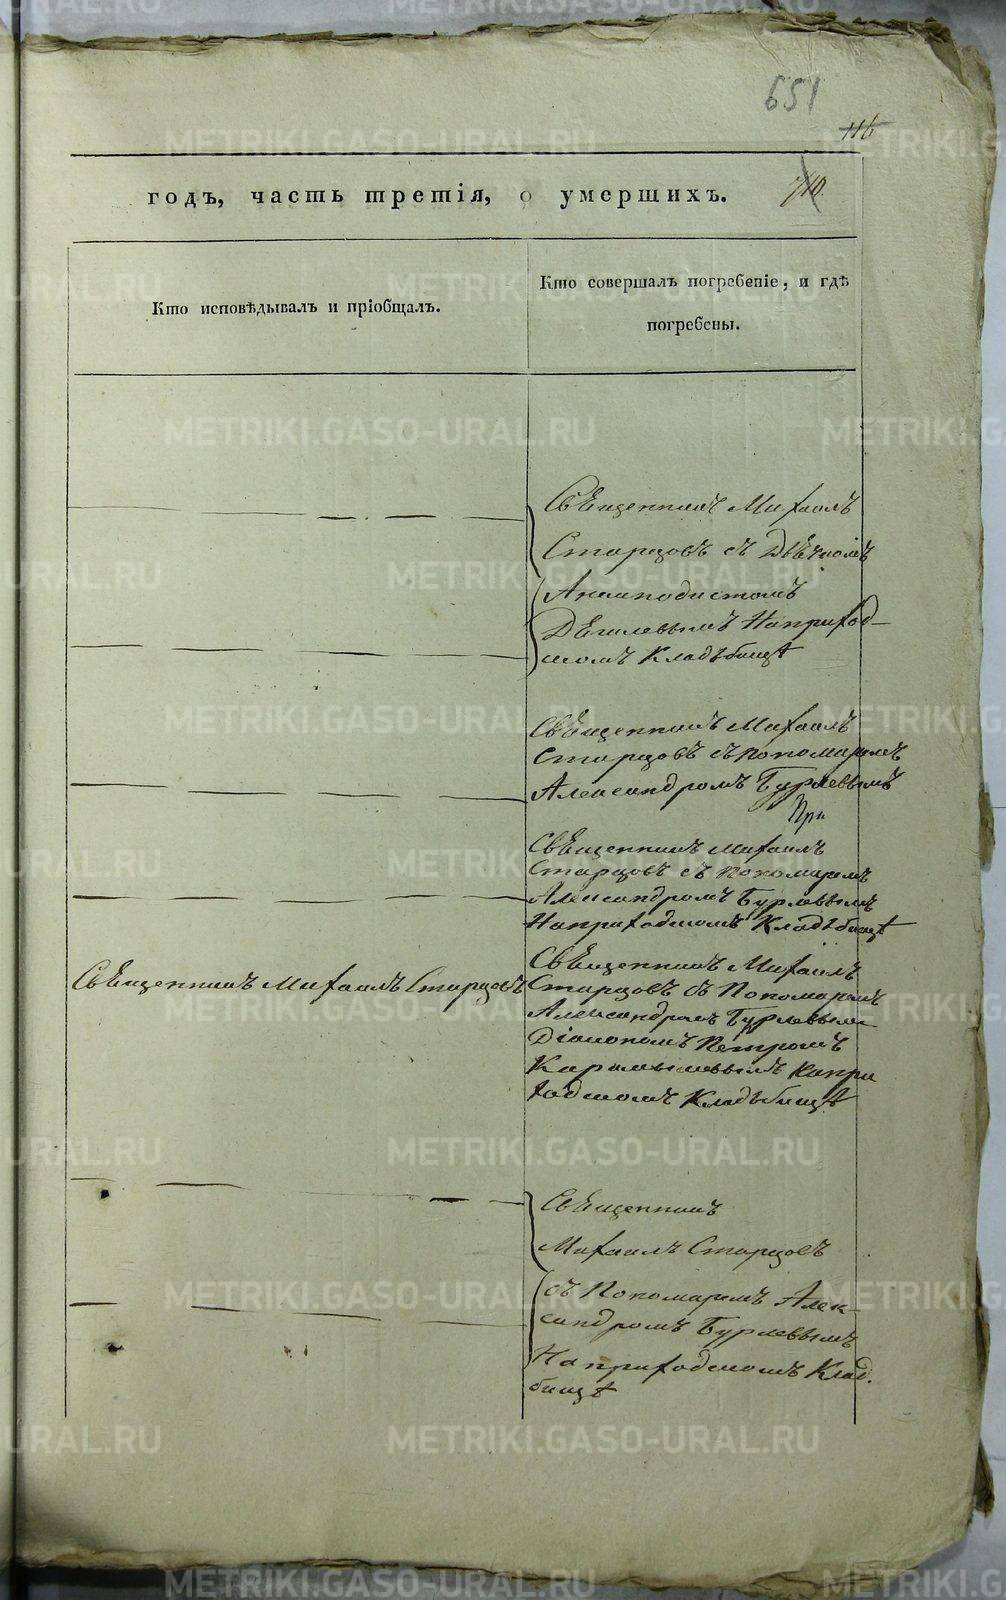 651
116
710.
годъ, часть третія, о умершихъ.
Кто исповѣдывалъ и пріобщалъ.
Кто совершалъ погребеніе, и гдѣ
погребены.
Священникъ Михаилъ
Старцовъ съ Дьячкомъ
Анемподистомъ
Дѣгилевымъ На приход-
скомъ Кладъбищѣ
Священникъ Михаилъ
Старцовъ съ пономаремъ
Александромъ Бурлевымъ
При
Священникъ Михаилъ
Старцовъ съ пономаремъ
Александромъ Бурлевымъ
На приходскомъ Кладъбищѣ
Священникъ Михаилъ Старцовъ
Священникъ Михаилъ
Старцовъ съ Пономаремъ
Александромъ Бурлевымъ
Діакономъ Петромъ
На при
ходскомъ Кладъбищѣ
Священникъ
Михаилъ Старцовъ
съ Пономаремъ Алек-
сандромъ Бурлевымъ
На приходскомъ Клад.
бищѣ
METRIKI.GASO-URAL.RU